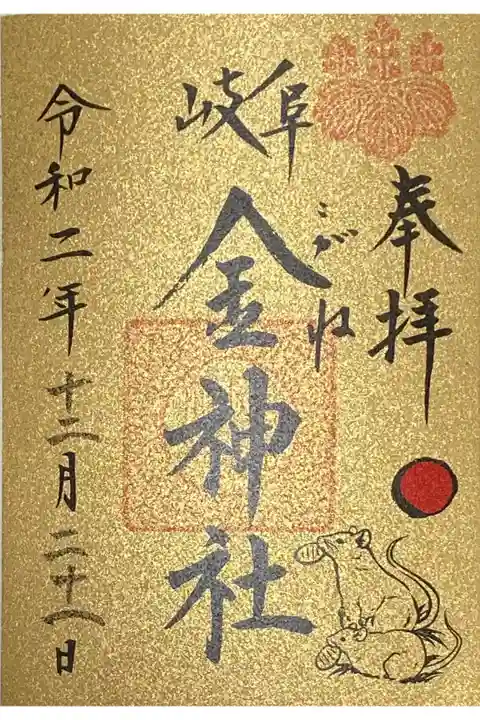 奉拝
岐阜
こがね
金神社
令和二年十二月二十一日